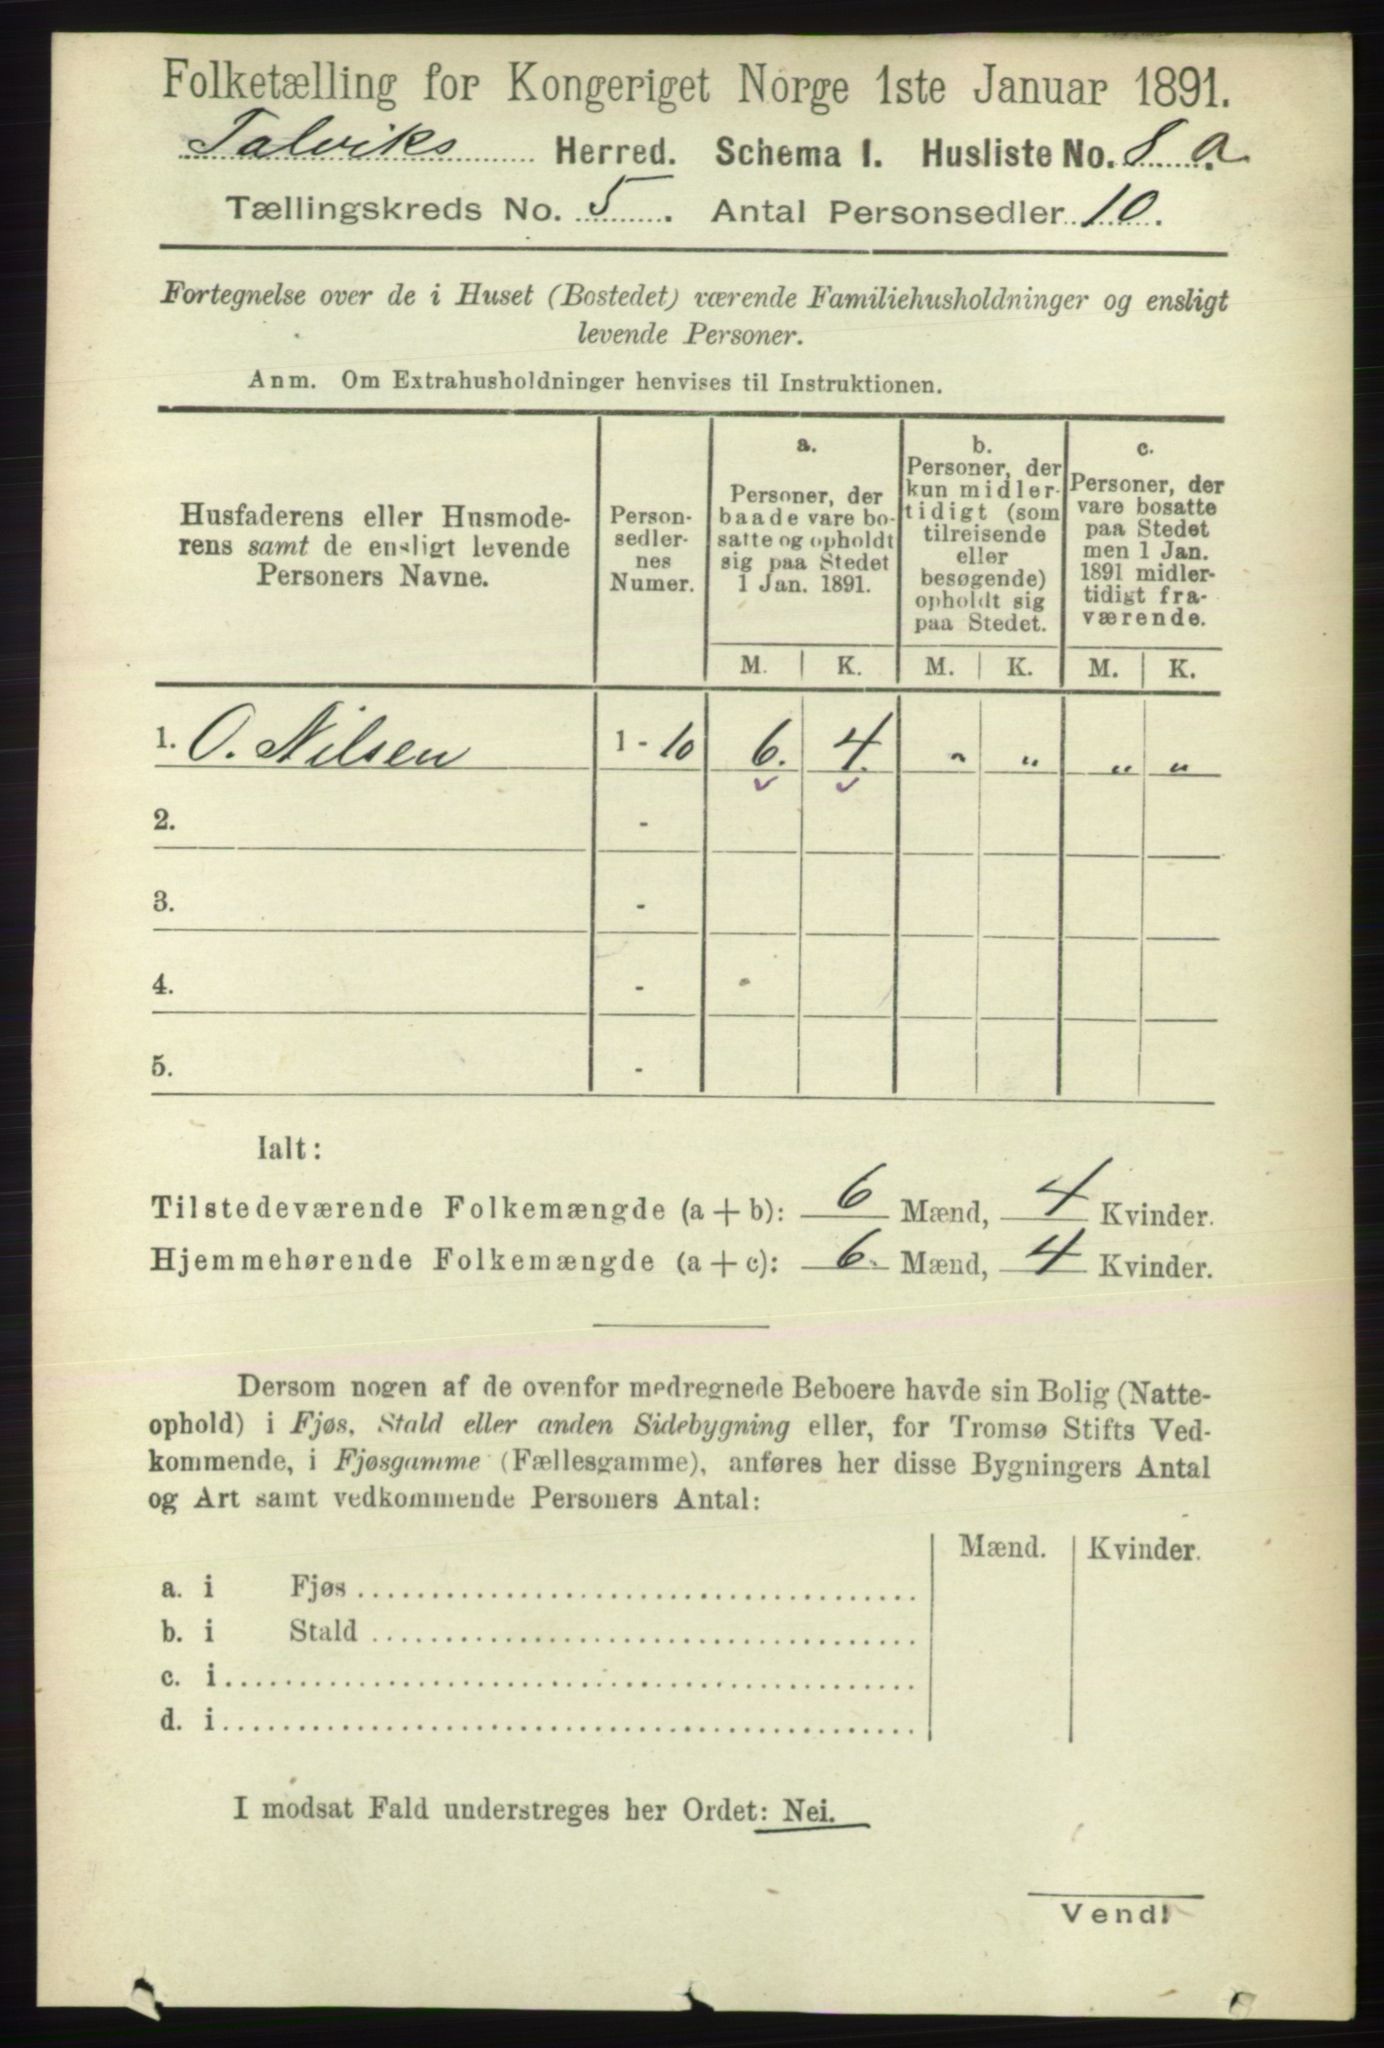 Folketælling for Kongeriget Norge 1ste Januar 1891.
Talviks Herred. Schema I. Husliste No. 8 a.
Tællingskreds No. 5. Antal Personsedler 10.
Fortegnelse over de i Huset (Bostedet) værende Familiehusholdninger og ensligt
levende Personer.
Anm. Om Extrahusholdninger henvises til Instruktionen.
Husfaderens eller Husmode-
rens samt de ensligt levende
Personers Navne.
Person-
sedler-
nes
Numer.
a.
Personer, der
baade vare bo-
satte og opholdt
sig paa Stedet
1 Jan. 1891.
b.
Personer, der
kun midler-
tidigt (som
tilreisende
eller
besøgende)
opholdt sig
paa Stedet.
c.
Personer, der
vare bosatte
paa Stedet
men 1 Jan.
1891 midler-
tidigt fra-
værende.
M. K. M. K. M. K.
1. O. Nilsen 1 - 10 6. 4. " " " "
2. -
3. -
4. -
5. -
Ialt:
Tilstedeværende Folkemængde (a + b): 6 Mænd, 4 Kvinder.
Hjemmehørende Folkemængde (a + c): 6. Mænd, 4 Kvinder.
Dersom nogen af de ovenfor medregnede Beboere havde sin Bolig (Natte-
ophold) i Fjøs, Stald eller anden Sidebygning eller, for Tromsø Stifts Ved-
kommende, i Fjøsgamme (Fællesgamme), anføres her disse Bygningers Antal
og Art samt vedkommende Personers Antal:
Mænd. Kvinder.
a. i Fjøs
b. i Stald
c. i
d. i
I modsat Fald understreges her Ordet: Nei.
Vend!